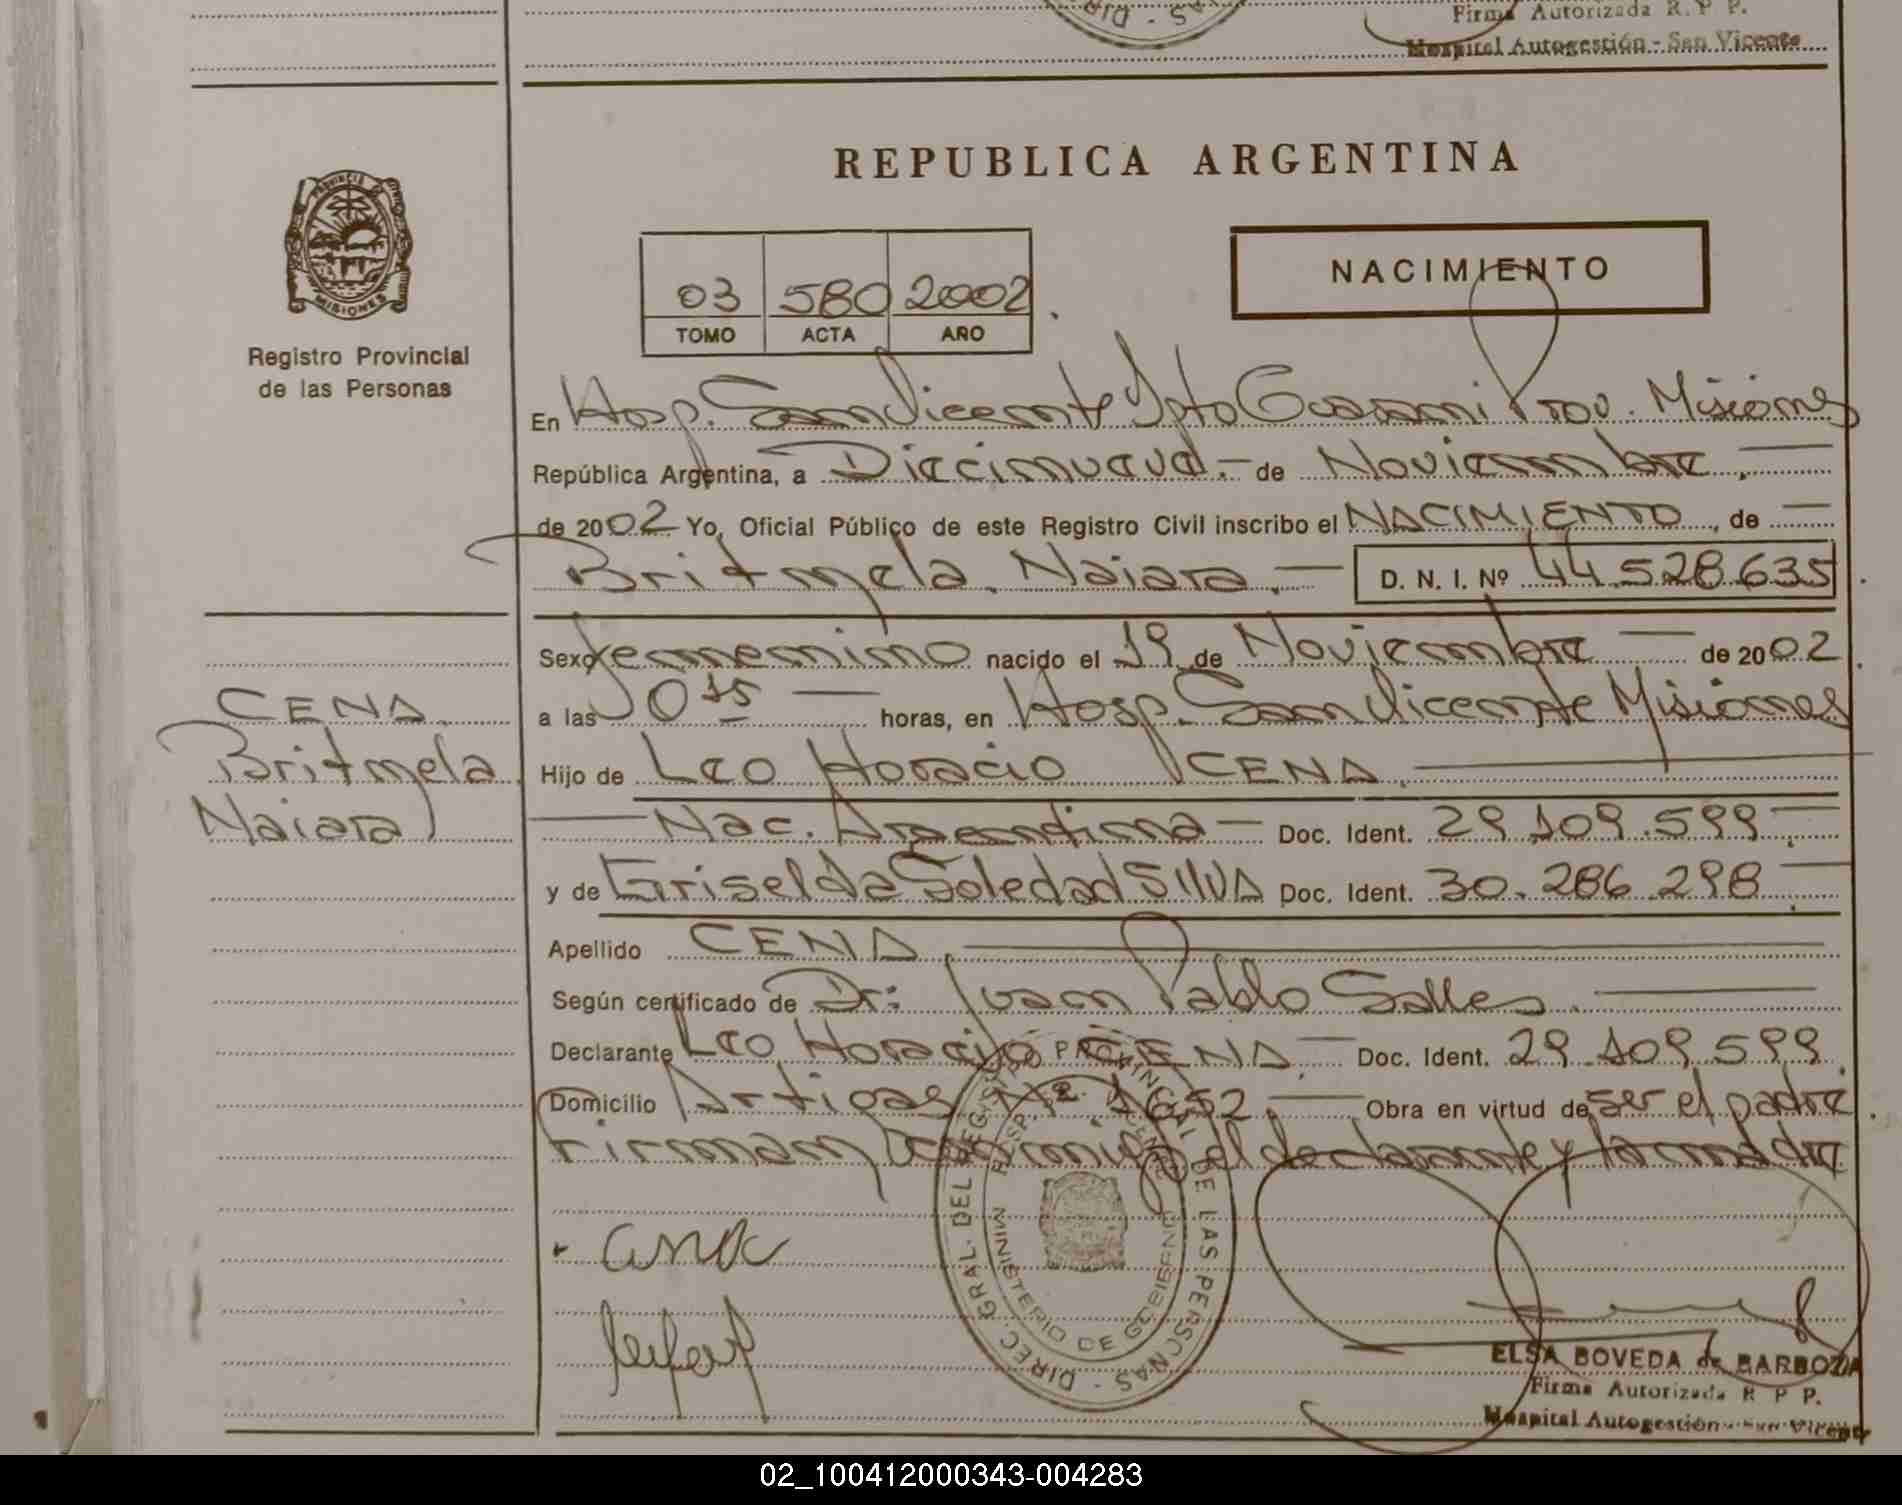 Firma Autorizada R. P. P.
Hospital Autogestión - San Vicente
REPUBLICA ARGENTINA
PROVINCIA DE
MISIONES
Registro Provincial
de las Personas
03 580 2002
TOMO ACTA AÑO
NACIMIENTO
En Hosp. San Vicente Dpto Guarani Prov. Misiones
República Argentina, a Diecinueve de Noviembre
de 2002 Yo, Oficial Público de este Registro Civil inscribo el NACIMIENTO, de
Britmela Naiara D. N. I. Nº 44.528.635
Sexo femenino nacido el 19 de Noviembre de 2002
a las 0 15 horas, en Hosp. San Vicente Misiones
CENA
Britmela
Naiara
Hijo de Leo Horacio CENA
Nac. Argentina Doc. Ident. 29.109.599
y de Griselda Soledad SILVA Doc. Ident. 30.286.298
Apellido CENA
Según certificado de Dr: Juan Pablo Salles
Declarante Leo Horacio CENA Doc. Ident. 29.109.599
Domicilio Artigas Nº 1652 Obra en virtud de ser el padre
Firman conmigo el declarante y la madre
DIREC. GRAL. DEL REGISTRO PROVINCIAL DE LAS PERSONAS
MINISTERIO DE GOBIERNO
HOSP. VICENTE
ELSA BOVEDA de BARBOZA
Firma Autorizada R P P.
Hospital Autogestión - San Vicente
02_100412000343-004283